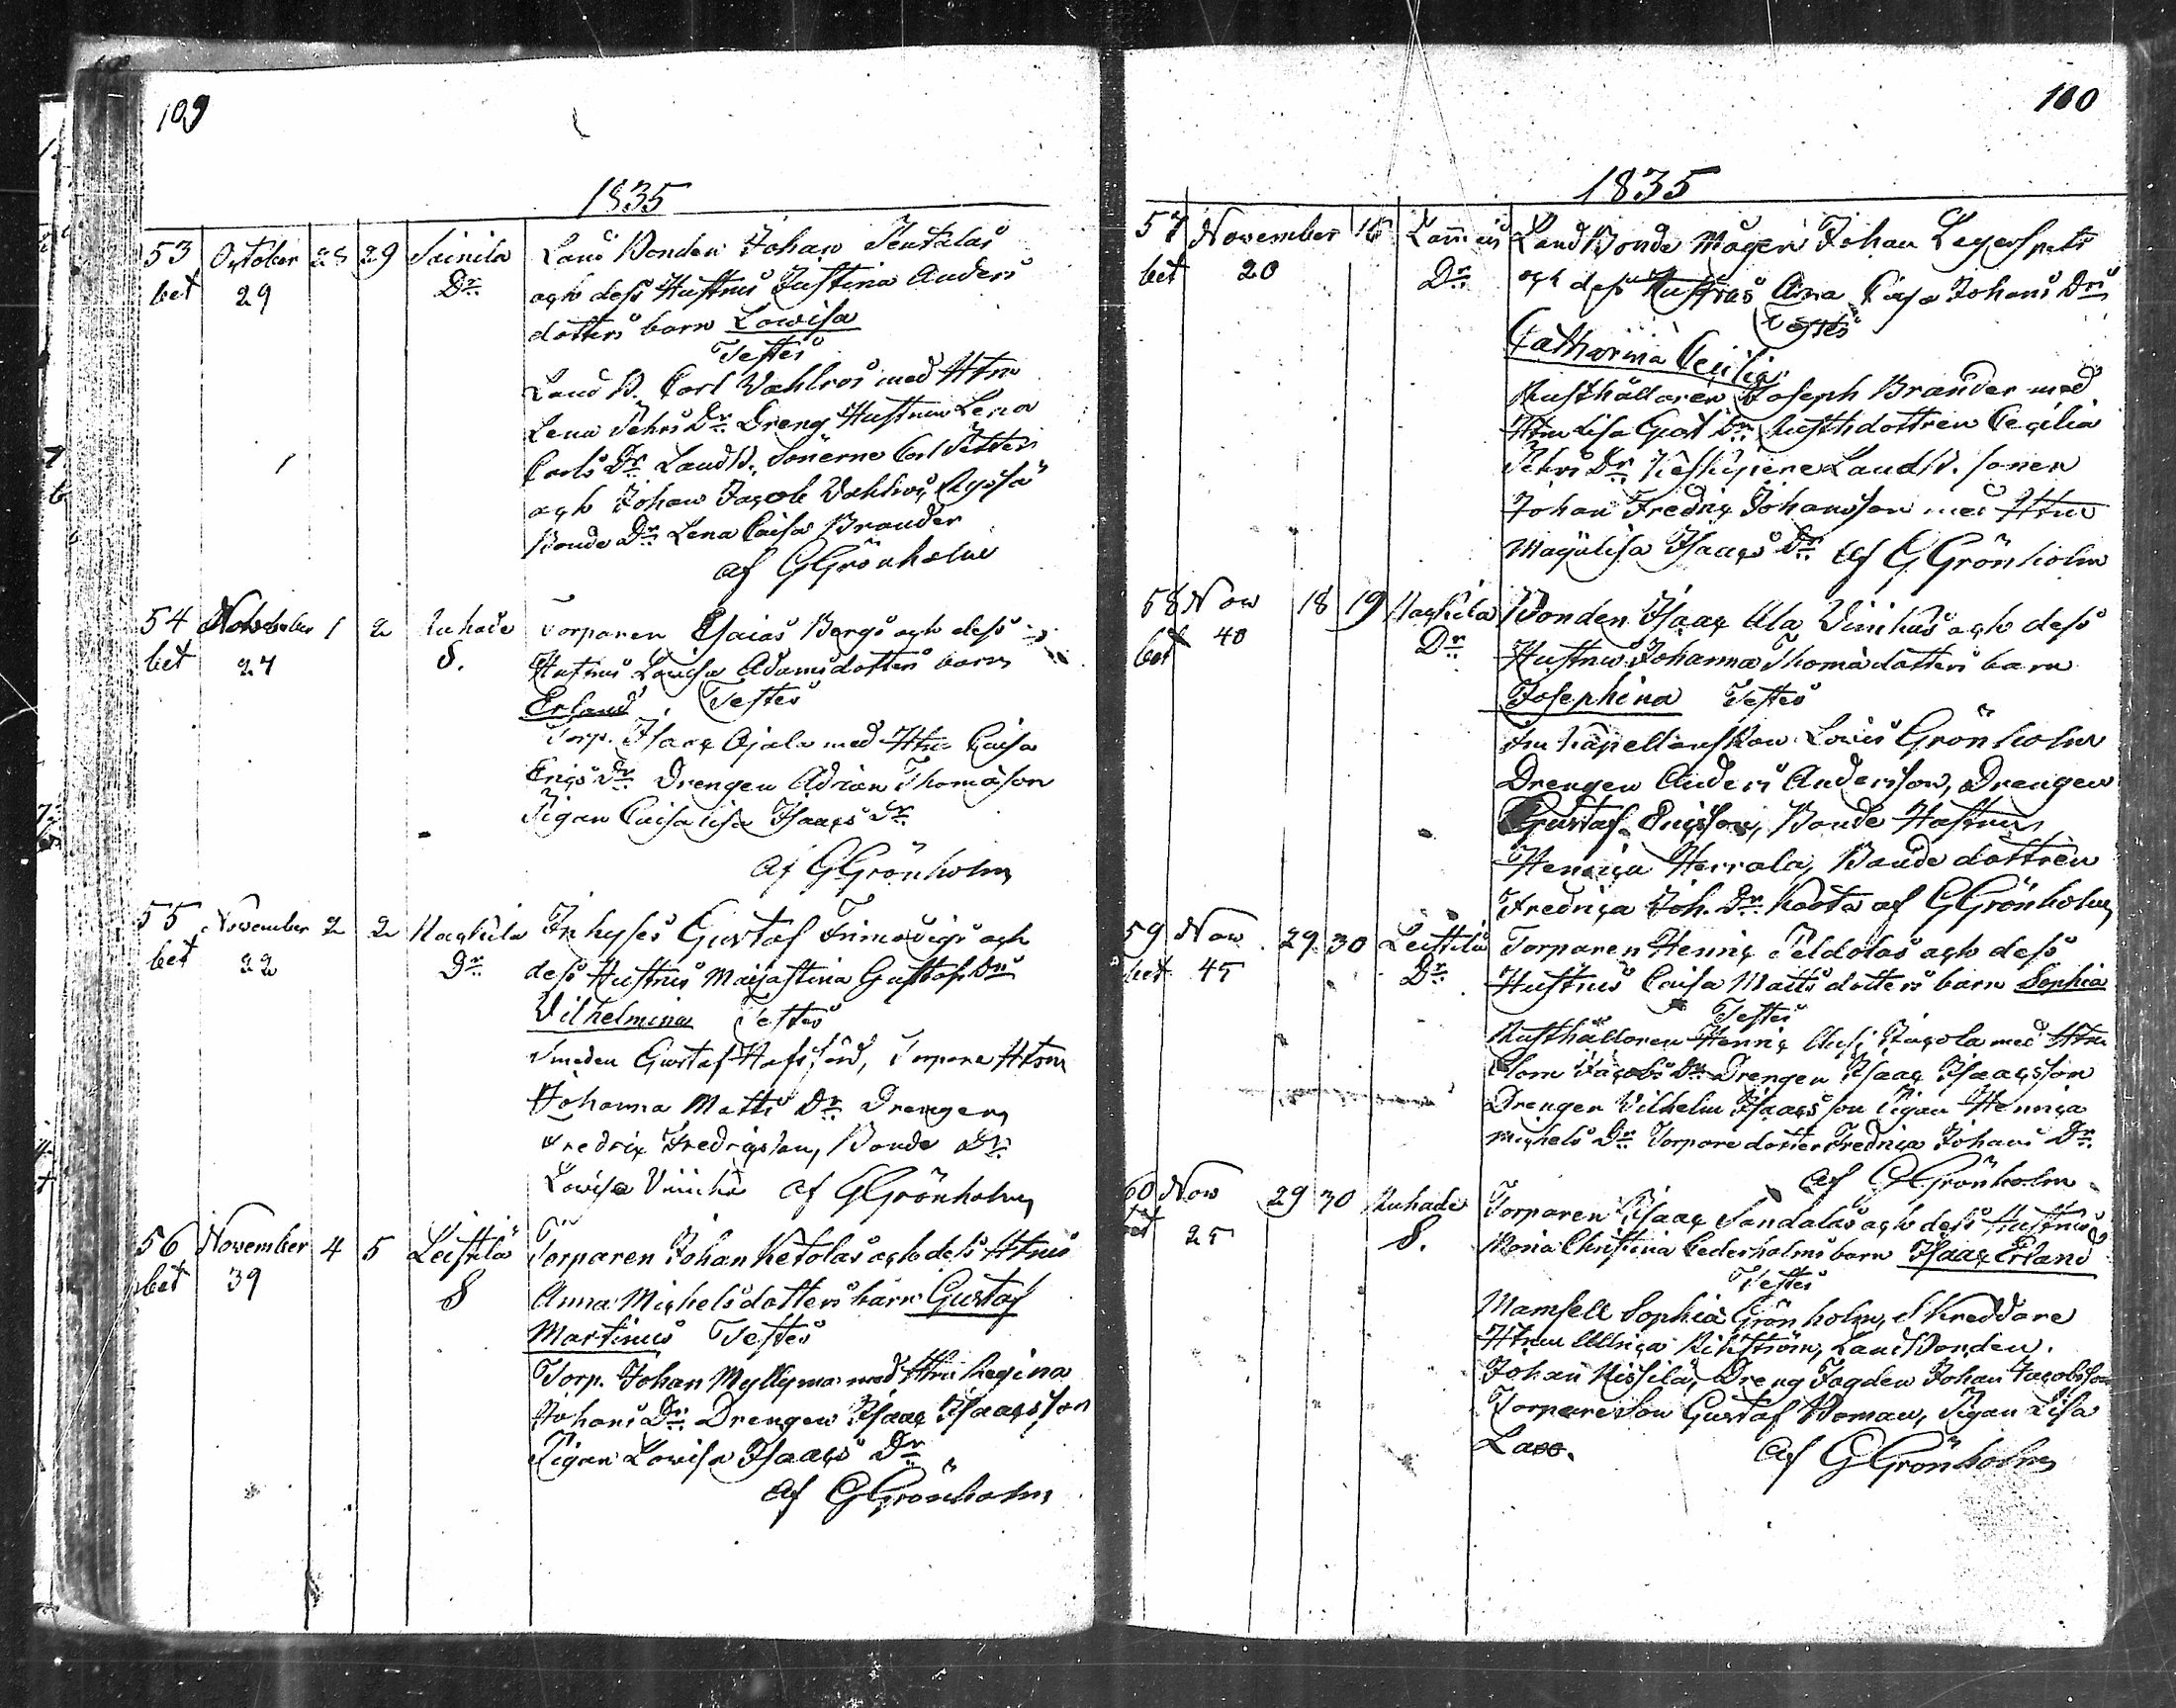 109
1835
53 October 28 29 Sainila Land Bonden Johan Pentalas
bet 29 Dr. och dess Hustrus Justina Anders
dotters barn Lowisa
Testes
Land B. Carl Wahlros med Htru
Lena Pehrs Dr. Dreng Hustrun Lena
Carls Dr. Land B. Sönerne Carl
och Johan Jacob Wahlros
Bonde Dr. Lena Caisa Brander
af GGrönholm
54 November 1 2 Ruhade Torparen Esaias Bergs och dess
bet 27 S. Hustrus Lowisa Adamsdotters barn
Erland Testes
Torp. Isaac Ojala med Htru Caisa
Erics Dr. Drengen Adrian Thomasson
Pigan Caisa Lisa Isaacs Dr.
af GGrönholm
55 November 2 2 Hackila Inhyses Gustaf Frimodigs och
bet 22 Dr. dess Hustrus Maijastina Gustafs Drs
Wilhelmina Testes
Smeden Gustaf Torpare Htrun
Johanna Matts Dr. Drengen
Fredric Fredricsson, Bonde Dr.
Lowisa af GGrönholm
56 November 4 5 Leistilä Torparen Johan Ketolas och dess Htrus
bet 39 S Anna Michelsdotters barn Gustaf
Martinus Testes
Torp. Johan Myllymaa med Htru Regina
Johans Dr. Drengen Isaac Isaacsson
Pigan Lowisa Isaacs Dr.
af GGrönholm
100
1835
57 November 15 Land Bonde Mågen Johan
bet 20 Dr. och dess Hustrus Anna Caisa Johans Drs
Testes
Catharina Cecilia
Rusthållaren Joseph Brander med
Htru Lisa Dr. Rusth.dottren Cecilia
Pehrs Dr. Land B. sonen
Johan Fredric Johansson med Htru
Majalisa Isaacs Dr. af GGrönholm
58 Nov 18 19 Hackila Bonden Isaac Ala Winikas och dess
bet 40 Dr. Hustrus Johanna Thomædotters barn
Josephina Testes
Fru Kapellanskan Lovis Grönholm
Drengen Anders Andersson, Drengen
Gustaf Ericsson, Bonde Hustrun
Henrica Herrala, Bonde dottren
Fredrica Joh. Dr. af GGrönholm
59 Nov 29 30 Leistilä Torparen Henric Peldolas och dess
bet 45 Dr. Hustrus Caisa Mattsdotters barn Sophia
Testes
Rusthållaren Henric med Htru
Jacobs Dr. Drengen Isaac Isaacsson
Drengen Wilhelm Isaacsson Pigan Henrica
Michels Dr. Torpare dotter Fredrica Johans Dr.
af GGrönholm
60 Nov 29 30 Ruhade Torparen Isaac Sandalas och dess Hustrus
bet 25 S. Maria Christina Cederholms barn Isaac Erland
Testes
Mamsell Sophia Grönholm, Skreddare
Htrun Ulrica Land Bonden
Johan Dreng Fogden Johan Jacobsson
Torpare Son Gustaf Homan, Pigan Lisa
af GGrönholm